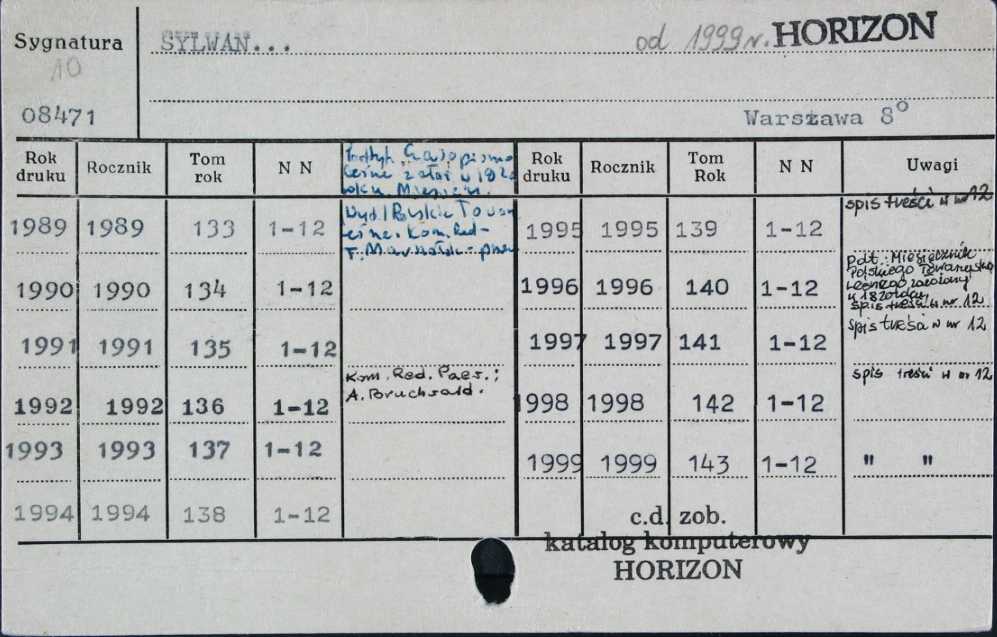 Sygnatura SYLWAN... od 1999r. HORIZON
10
08471 Warszawa 8°
Rok druku Rocznik Tom rok N N Rok druku Rocznik Tom Rok N N Uwagi
Czasopismo
leśne
1989 1989 133 1-12 1995 1995 139 1-12 spis treści w nr 12
Kom. Red.
1990 1990 134 1-12 1996 1996 140 1-12 pdt: Miesięcznik
Polskiego Towarzystwa
Leśnego założony
w 1820 roku
spis treści w nr 12
1991 1991 135 1-12 1997 1997 141 1-12 spis treści w nr 12
Kom. Red.
1992 1992 136 1-12 A. Bruchwald. 1998 1998 142 1-12 spis treści w nr 12
1993 1993 137 1-12 1999 1999 143 1-12 " "
1994 1994 138 1-12
c.d. zob.
katalog komputerowy
HORIZON